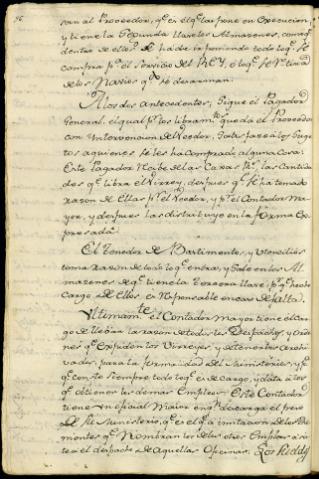 san al Proveedor, qe. es elqe. las pone en Execucion,
y tiene la Segunda llave los Almazenes, con
dentro de ellos se ha de ir poniendo todo lo qe. se
compra pa. el Servicio del REY, o lo qe. se
de los Navios qe. se desarman.
A los dos antecedentes, Sigue el Pagador
General, el qual pr. los libramtos. que da el Proveedor
con Intervencion del Veedor, Satisface a los Suge
tos a quienes se les ha Comprado alguna Cosa:
Este Pagador recibe de las Caxas Rs. las Cantida
des qe. libra el Virrey, despues qe. se ha tomado
razon de ellas pr. el Veedor, y pr. el Contador Ma
yor, y despues las distribuye en la forma Ex
presada.
El Tenedor de Bastimentos, y Utencilios
toma razon de todo lo qe. entra, y Sale en los Al
mazenes de qe. tiene la Tercera llave; pr. qe. hecho
Cargo de Ellos, es Responsable en caso de falta.
Ultimamte. el Contador Mayor tiene el Car
go de llebar la razon de todos los Despachos, y Orde
nes qe. expiden los Virreyes, y de tenerlas Archi
vadas, para la formalidad del Ministerio, y pa.
qe. conste Siempre todo lo qe. es de cargo, y data a los
qe. obtienen los demas Empleos: Este Contador
tiene Un oficial Maior en qn. descarga el peso
de Su Ministerio, qe. es el qe. a imitacion de los
montes qe. Nombran los de los otros Empleos asis
te al despacho de Aquellas Oficinas.